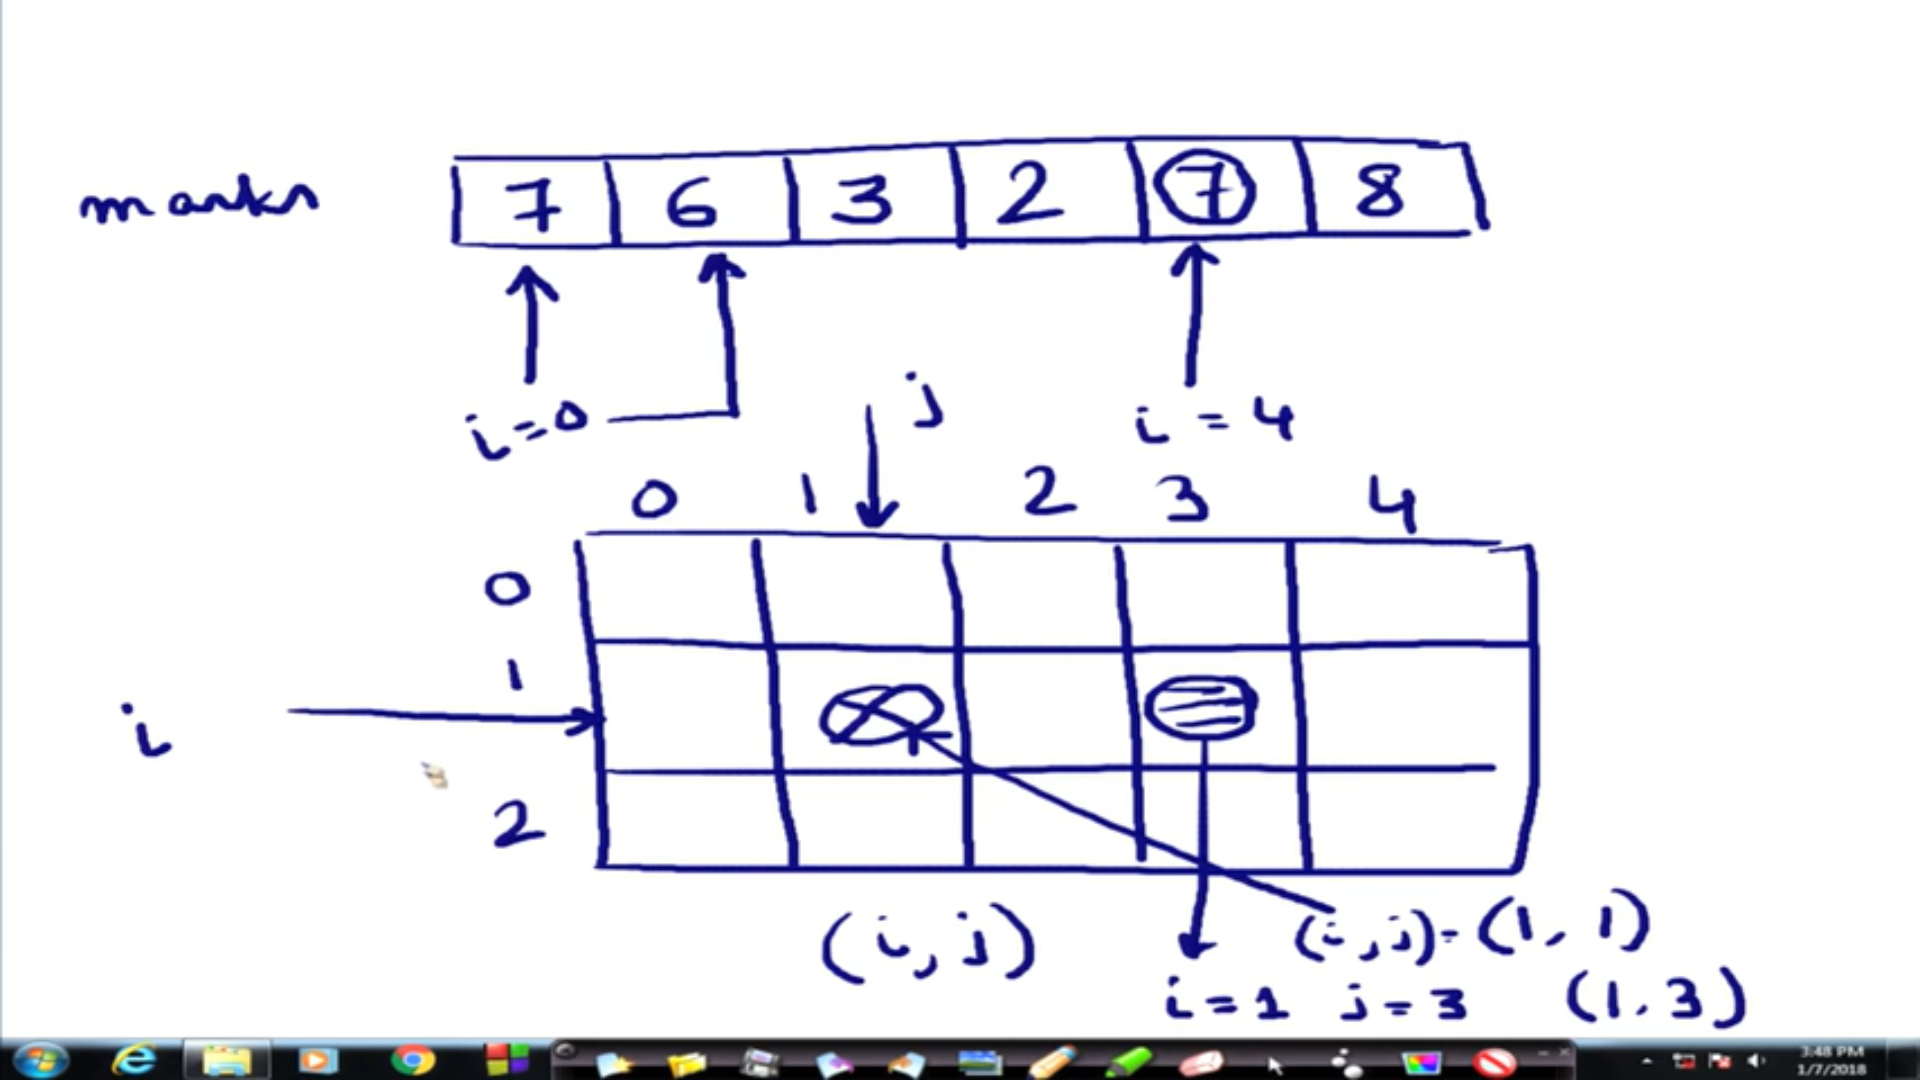 marks 7 6 3 2 7 8
i=0 j i = 4
0 1 2 3 4
0
1
i
2
(i,j) (i,j)= (1, 1)
i = 1 j = 3 (1,3)
3:48 PM
1/7/2018